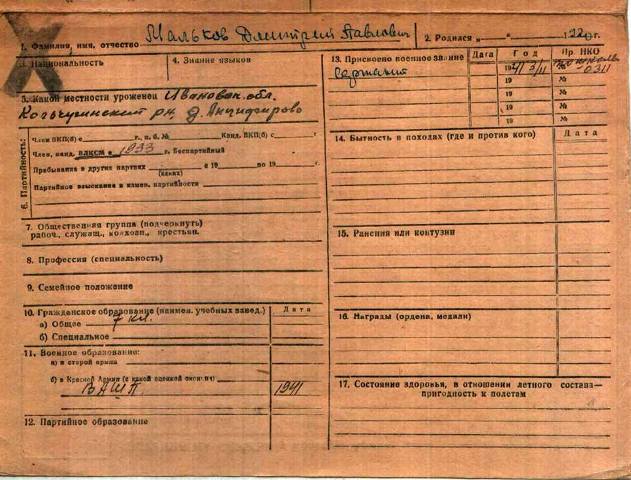 1. Фамилия, имя, отчество Мальков Дмитрий Павлович
2. Родился „ “ 1920 г.
3. Национальность
4. Знание языков
5. Какой местности уроженец Ивановск. обл.
Кольчугинский рн. д. Анциферово
6. Партийность:
Член ВКП(б) с г., п. б. № Канд. ВКП(б) с г.
Член, канд. ВЛКСМ с 1933 г. Беспартийный
Пребывание в других партиях с 19 по 19 г.
(каких)
Партийные взыскания и измен. партийности
7. Общественная группа (подчеркнуть)
рабоч., служащ., колхозн., крестьян.
8. Профессия (специальность)
9. Семейное положение
10. Гражданское образование (наимен. учебных завед.) Дата
а) Общее 7 кл.
б) Специальное
11. Военное образование:
а) в старой армии
б) в Красной Армии (с какой оценкой окончил)
ВАШП 1941
12. Партийное образование
13. Присвоено военное звание Дата Год Пр. НКО
Сержант 1941 3/II № 0311
19 №
19 №
19 №
14. Бытность в походах (где и против кого) Дата
15. Ранения или контузии
16. Награды (ордена, медали)
17. Состояние здоровья, в отношении летного состава—
пригодность к полетам